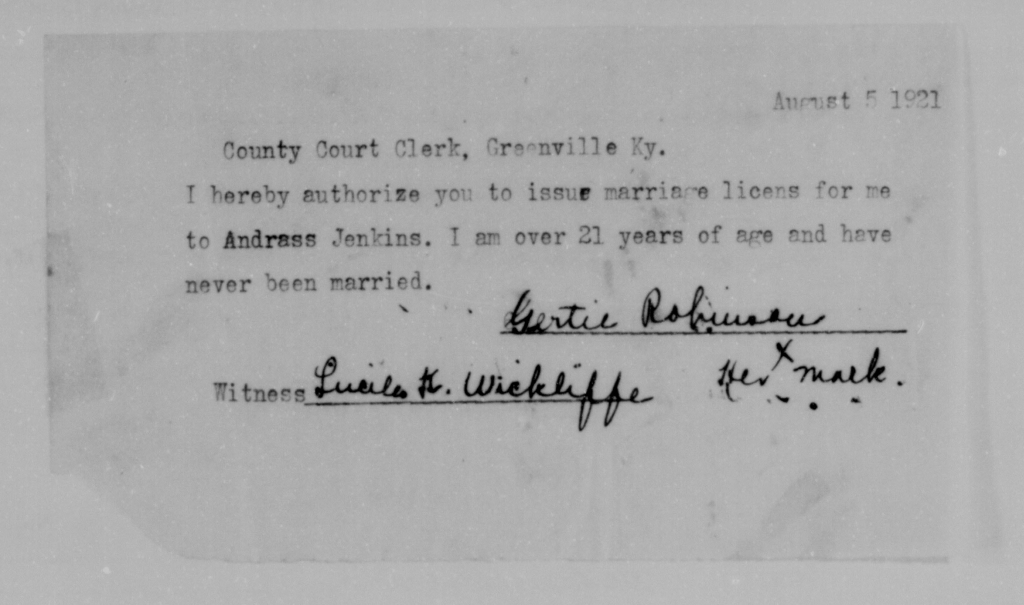 August 5 1921
County Court Clerk, Greenville Ky.
I hereby authorize you to issue marriage licens for me
to Andrass Jenkins. I am over 21 years of age and have
never been married.
Gertie Robinson
Her X mark.
Witness Lucile H. Wickliffe